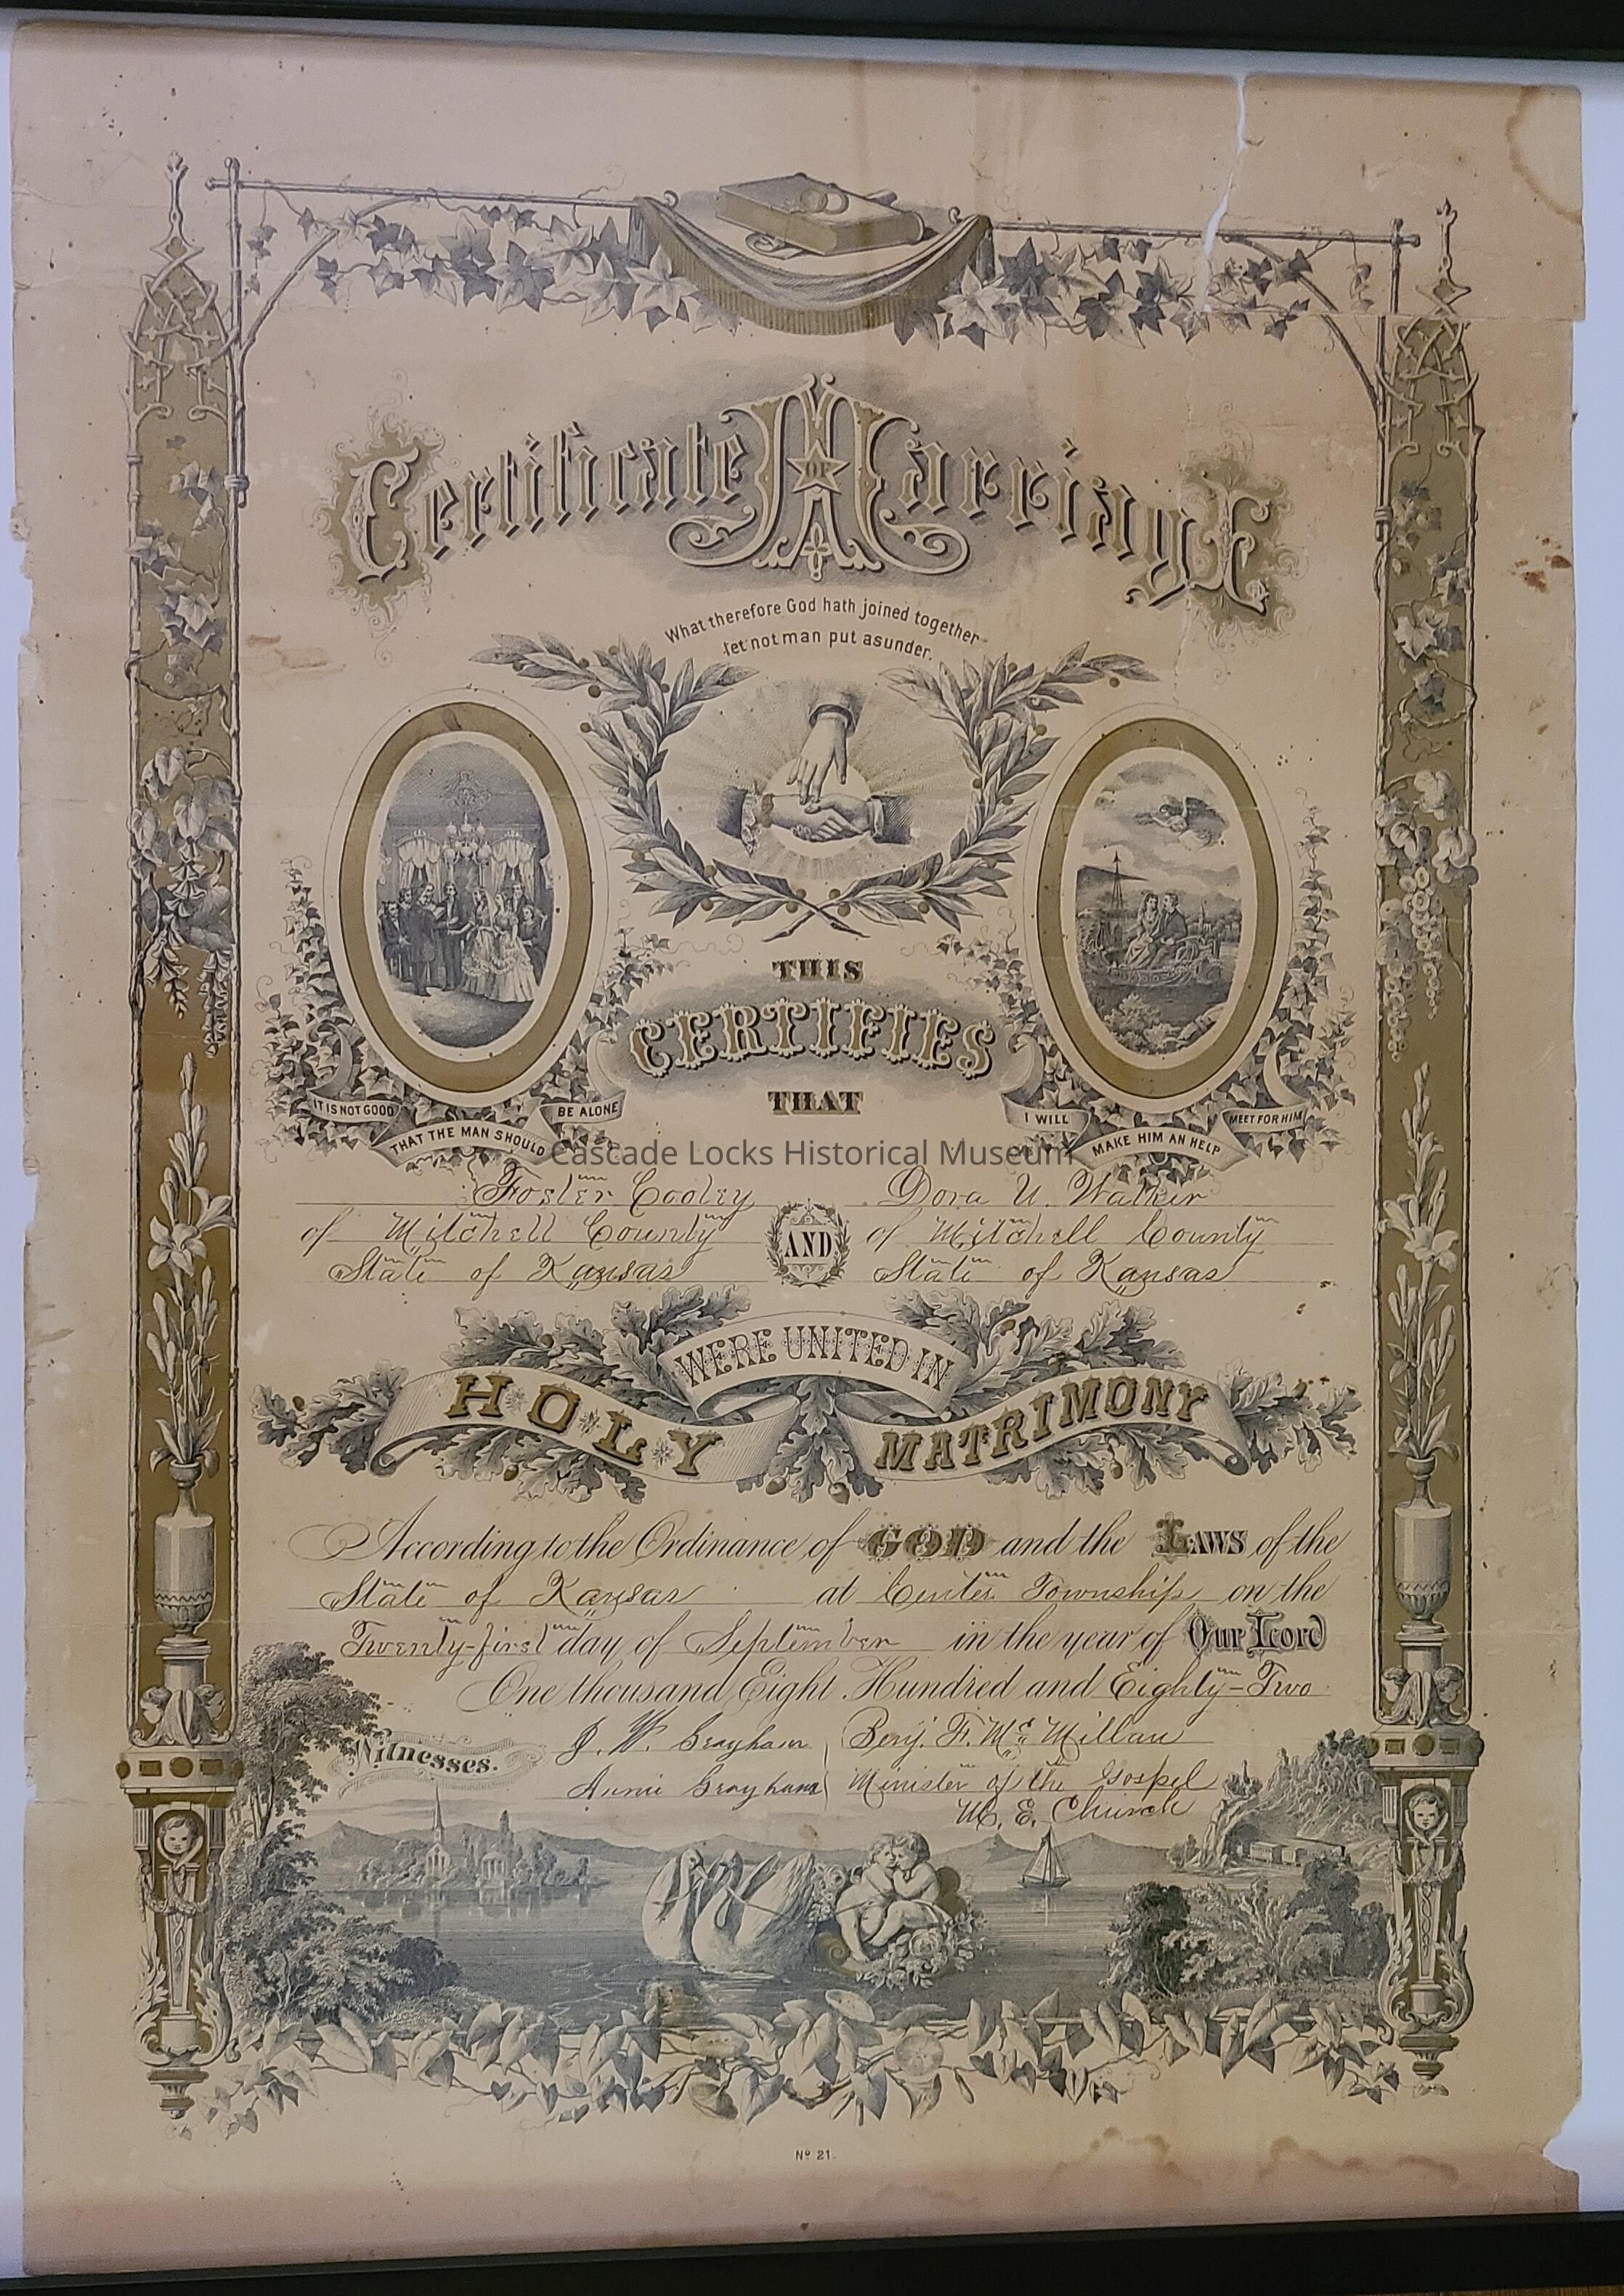 Certificate OF Marriage
What therefore God hath joined together
let not man put asunder.
THIS
CERTIFIES
THAT
IT IS NOT GOOD THAT THE MAN SHOULD BE ALONE
I WILL MAKE HIM AN HELP MEET FOR HIM
Cascade Locks Historical Museum
Foster Cooley AND Dora U. Walker
of Mitchell County of Mitchell County
State of Kansas State of Kansas
WERE UNITED IN
HOLY MATRIMONY
According to the Ordinance of GOD and the LAWS of the
State of Kansas at Center Township on the
Twenty-first day of September in the year of Our Lord
One thousand Eight Hundred and Eighty-Two
Witnesses.
J. W. Grayham
Annie Grayham
Benj. F. Mc Millan
Minister of the Gospel
M. E. Church
No 21.